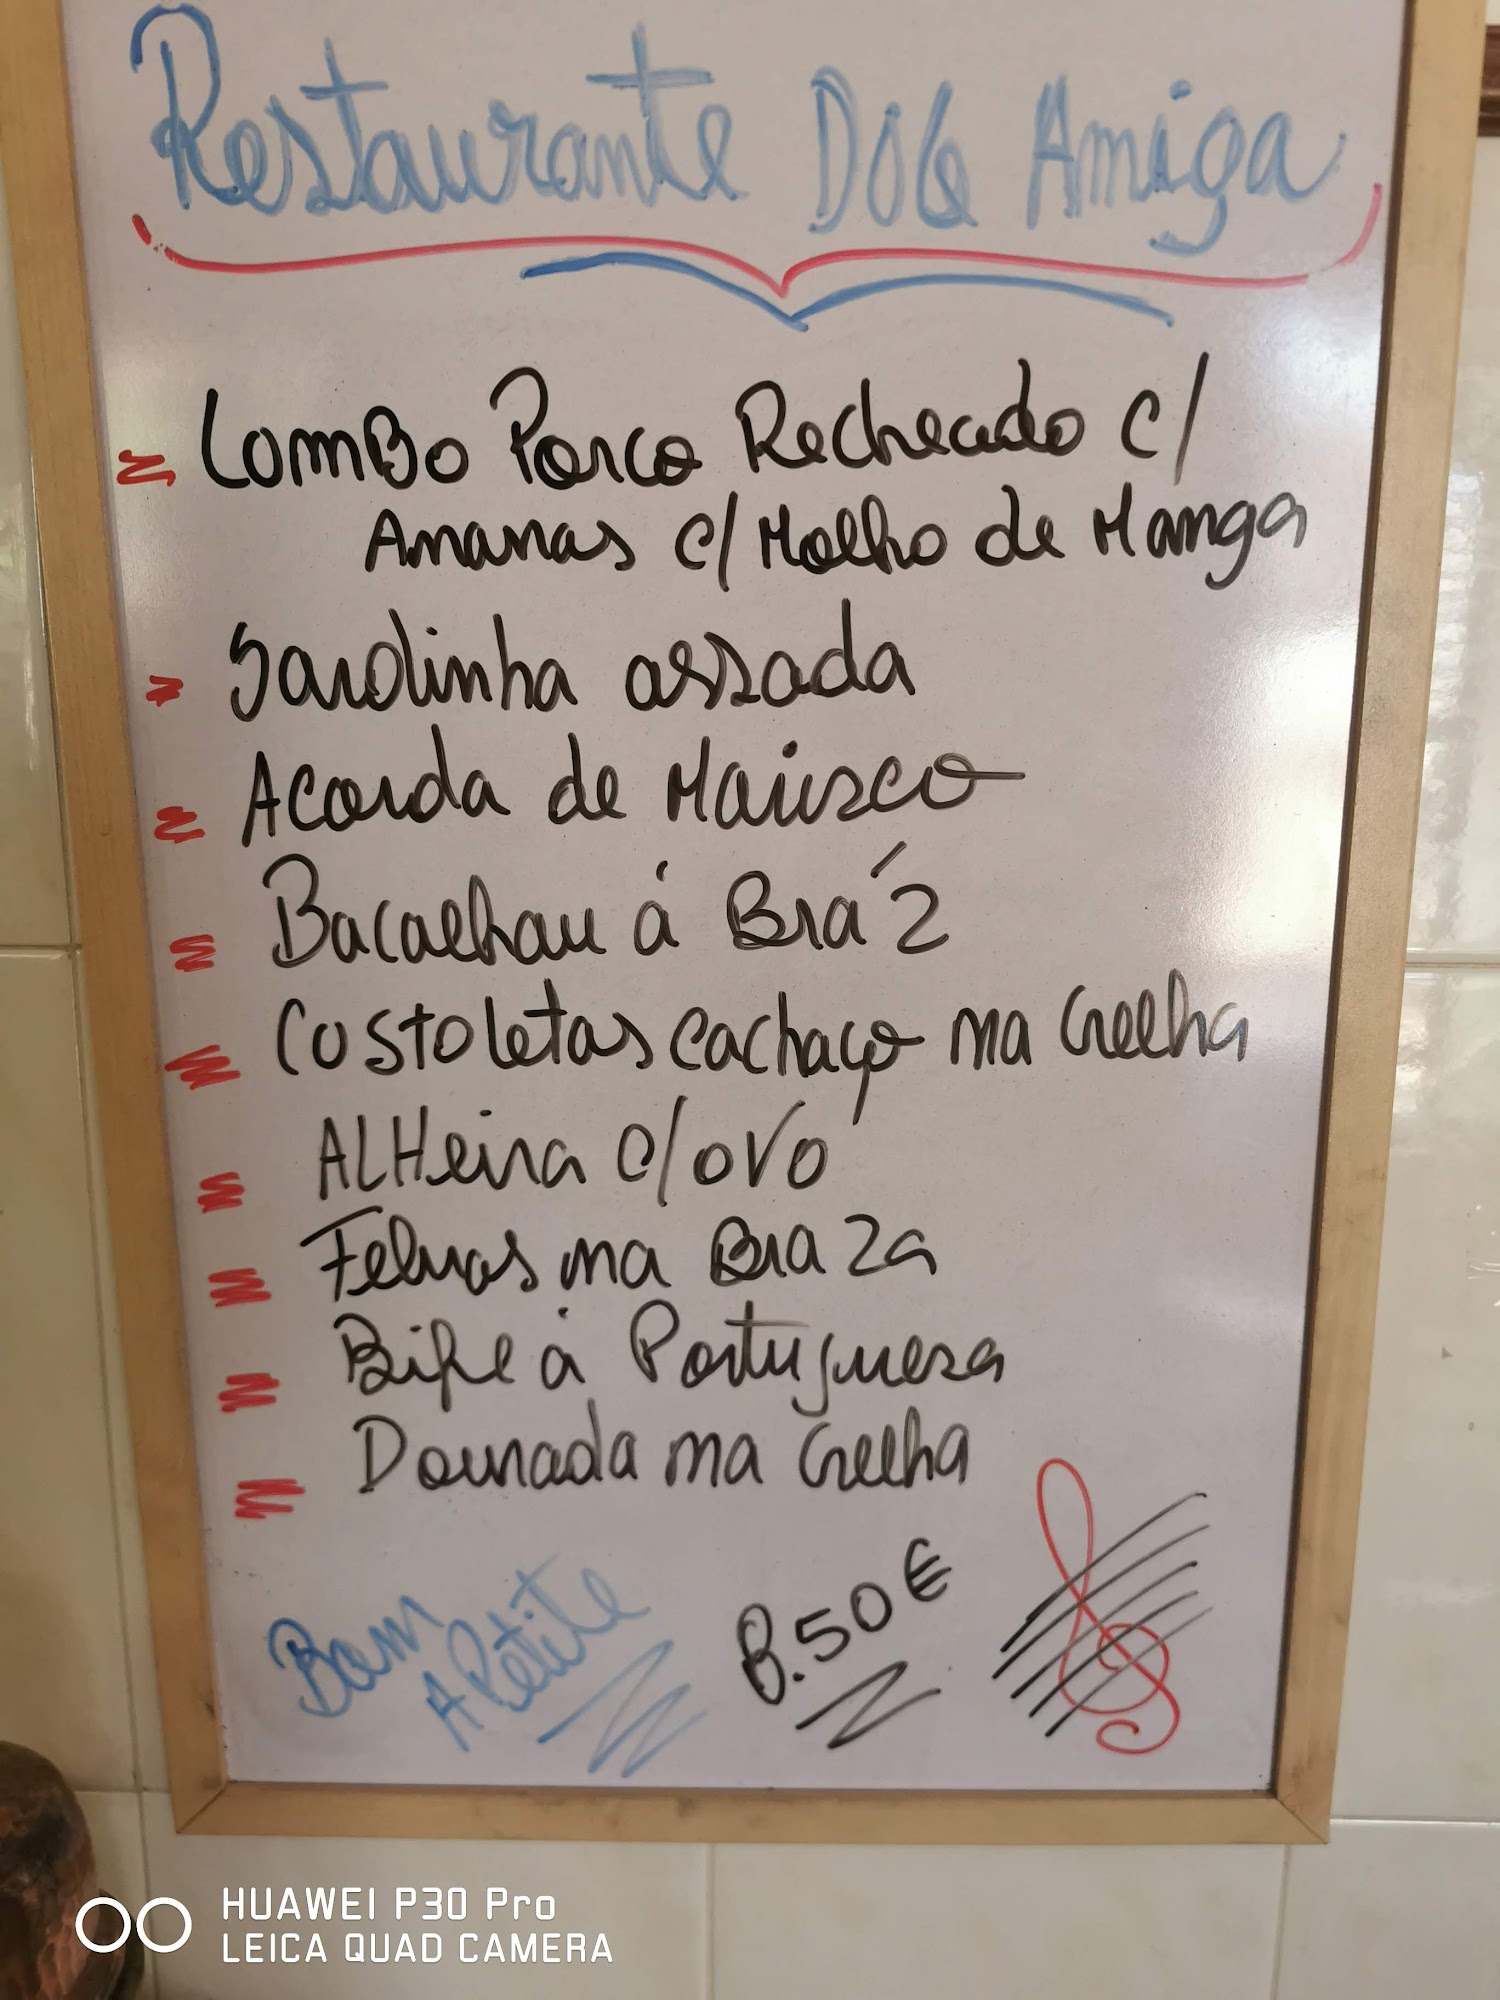 Restaurante DOG Amiga
LomBo Porco Recheado c/
Ananas c/ Molho de Manga
Sardinha assada
Acorda de Marisco
Bacalhau á Bráz
Costoletas cachaço na Grelha
ALHeira c/ovo
Febras na Braza
Bife á Portuguesa
Dourada na Grelha
Bom
APetite
8.50€
HUAWEI P30 Pro
LEICA QUAD CAMERA